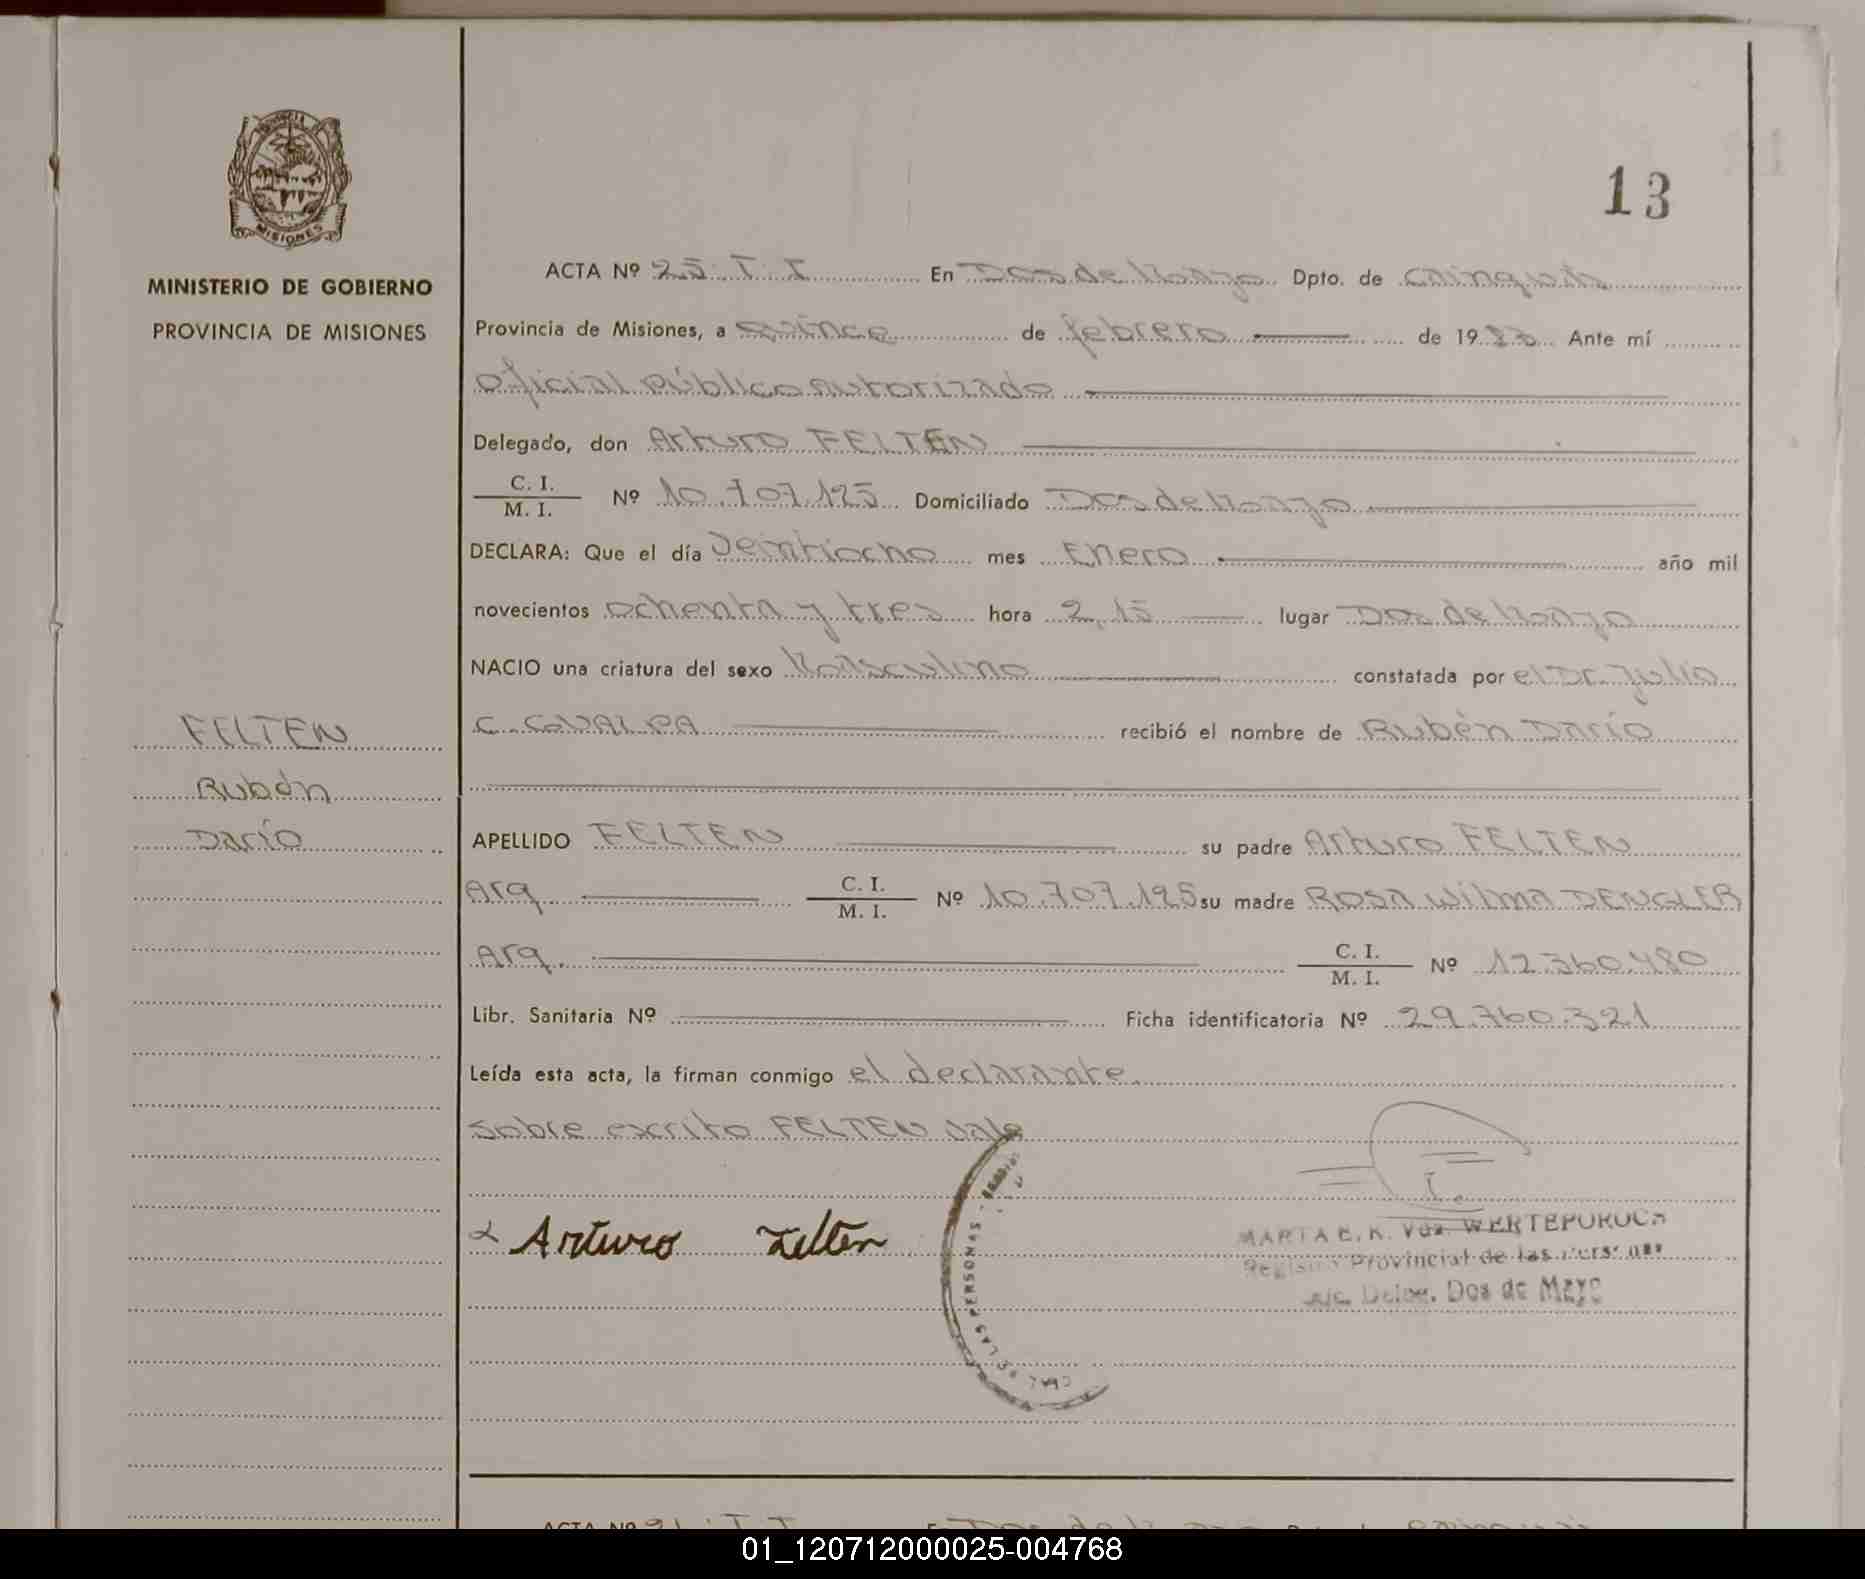 PROVINCIA
MISIONES
MINISTERIO DE GOBIERNO
PROVINCIA DE MISIONES
13
ACTA Nº 25. T. I. En Dos de Mayo Dpto. de Cainguás
Provincia de Misiones, a quince de febrero de 1983 Ante mí
oficial público autorizado
Delegado, don Arturo FELTEN
C. I.
M. I. Nº 10.707.125 Domiciliado Dos de Mayo
DECLARA: Que el día veintiocho mes Enero año mil
novecientos ochenta y tres hora 2,15 lugar Dos de Mayo
NACIO una criatura del sexo Masculino constatada por el Dr. Julio
C. GUALPA recibió el nombre de Rubén Darío
FELTEN
Rubén
Darío
APELLIDO FELTEN su padre Arturo FELTEN
Arq C. I.
M. I. Nº 10.707.125 su madre Rosa Wilma DENGLER
Arq. C. I.
M. I. Nº 12.360.480
Libr. Sanitaria Nº Ficha identificatoria Nº 29.760.321
Leída esta acta, la firman conmigo el declarante.
Sobre escrito FELTEN vale
Arturo Felten
DE LAS PERSONAS
MARTA E. K. Vda. WERTEPUROCH
Registro Provincial de las Personas
Deleg. Dos de Mayo
ACTA Nº T. I.
01_120712000025-004768